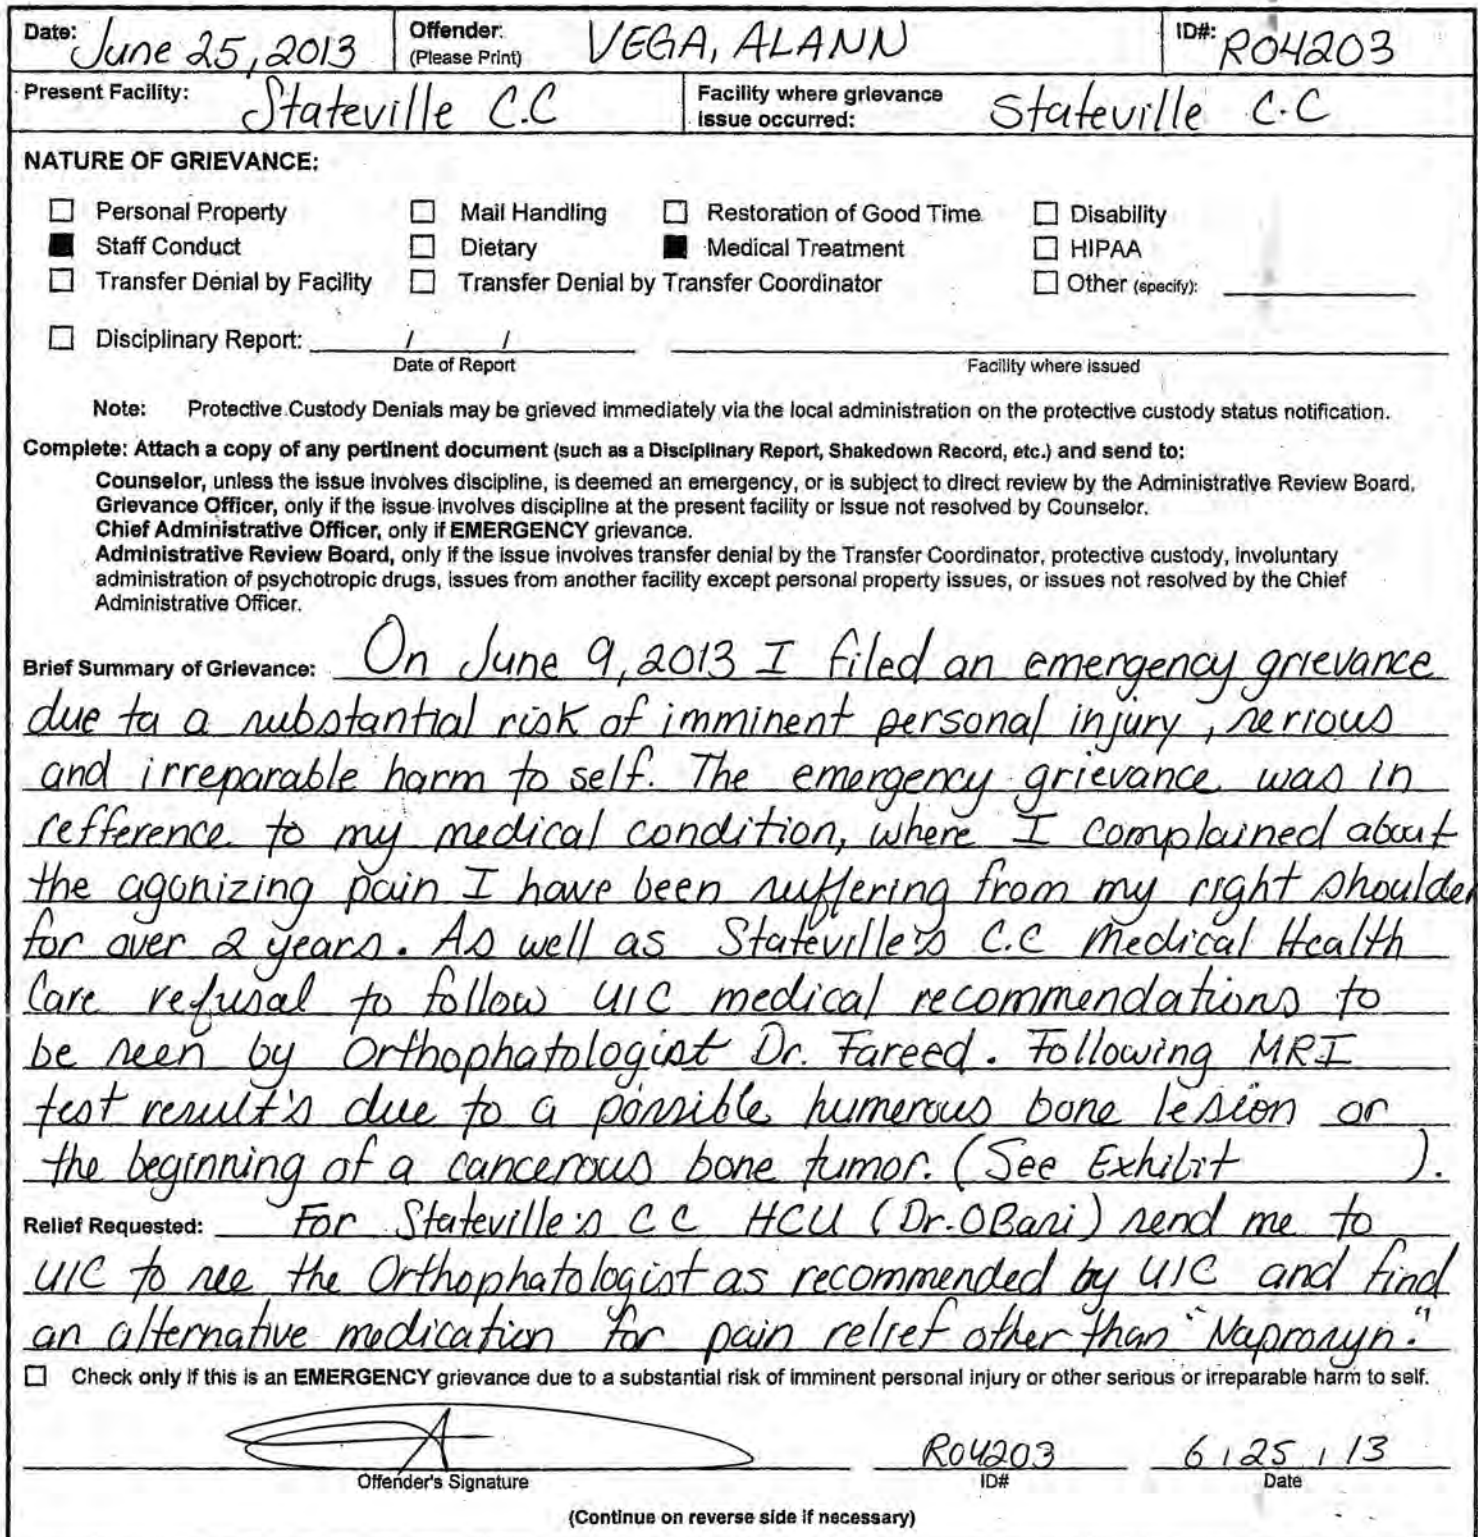 Date: June 25, 2013 Offender: (Please Print) VEGA, ALANN ID#: R04203
Present Facility: Stateville C.C Facility where grievance issue occurred: Stateville C.C
NATURE OF GRIEVANCE:
☐ Personal Property ☐ Mail Handling ☐ Restoration of Good Time ☐ Disability
■ Staff Conduct ☐ Dietary ■ Medical Treatment ☐ HIPAA
☐ Transfer Denial by Facility ☐ Transfer Denial by Transfer Coordinator ☐ Other (specify):
☐ Disciplinary Report: / /
Date of Report Facility where issued
Note: Protective Custody Denials may be grieved immediately via the local administration on the protective custody status notification.
Complete: Attach a copy of any pertinent document (such as a Disciplinary Report, Shakedown Record, etc.) and send to:
Counselor, unless the issue involves discipline, is deemed an emergency, or is subject to direct review by the Administrative Review Board.
Grievance Officer, only if the issue involves discipline at the present facility or issue not resolved by Counselor.
Chief Administrative Officer, only if EMERGENCY grievance.
Administrative Review Board, only if the issue involves transfer denial by the Transfer Coordinator, protective custody, involuntary
administration of psychotropic drugs, issues from another facility except personal property issues, or issues not resolved by the Chief
Administrative Officer.
Brief Summary of Grievance: On June 9, 2013 I filed an emergency grievance
due to a substantial risk of imminent personal injury, serious
and irreparable harm to self. The emergency grievance was in
refference to my medical condition, where I complained about
the agonizing pain I have been suffering from my right shoulder
for over 2 years. As well as Stateville's C.C Medical Health
Care refusal to follow UIC medical recommendations to
be seen by Orthophatologist Dr. Fareed. Following MRI
test result's due to a possible humerous bone lesion or
the beginning of a cancerous bone tumor. (See Exhibit ).
Relief Requested: For Stateville's C C HCU (Dr. OBasi) send me to
UIC to see the Orthophatologist as recommended by UIC and find
an alternative medication for pain relief other than "Naprosyn."
☐ Check only if this is an EMERGENCY grievance due to a substantial risk of imminent personal injury or other serious or irreparable harm to self.
R04203 6 / 25 / 13
Offender's Signature ID# Date
(Continue on reverse side if necessary)